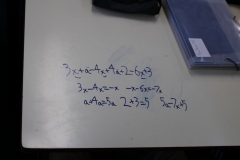 3x+a-4x+4a+2-6x+3
3x-4x=-x -x-6x=-7x
a+4a=5a 2+3=5 5a-7x+5